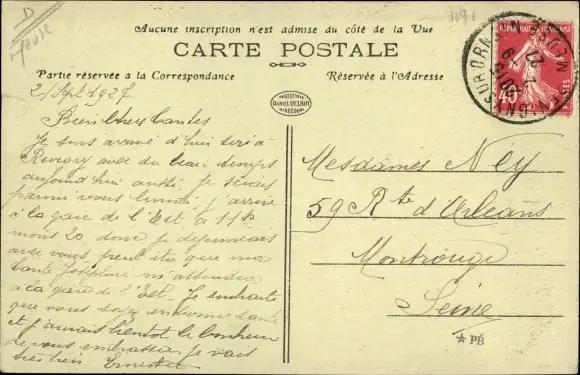 D
Meuse
3091
Aucune inscription n'est admise du côté de la Vue
CARTE POSTALE
Partie réservée à la Correspondance
Réservée à l'Adresse
REPUBLIQUE FRANÇAISE
40
POSTES
REVIGNY-SUR-ORNAIN
MEUSE
DANIEL DELBOY
MIRECOURT
2 / Sept 1927
Bien chères tantes
Je suis arrivé d'hier soir à
Revigny avec du beau temps
aujourd'hui aussi, je serais
parmi vous lundi, j'arrive
à la gare de l'Est à 11h
moins 20, donc je déjeunerais
avec vous, peut être que ma
tante Joséphine m'attendra
à la gare de l'Est. Je souhaite
que vous soyez en bonne santé
et j'aurais bientôt le bonheur
de vous embrasser, je vais
très bien Ernest
Mesdames Ney
59 Rte d'Orléans
Montrouge
Seine
PB